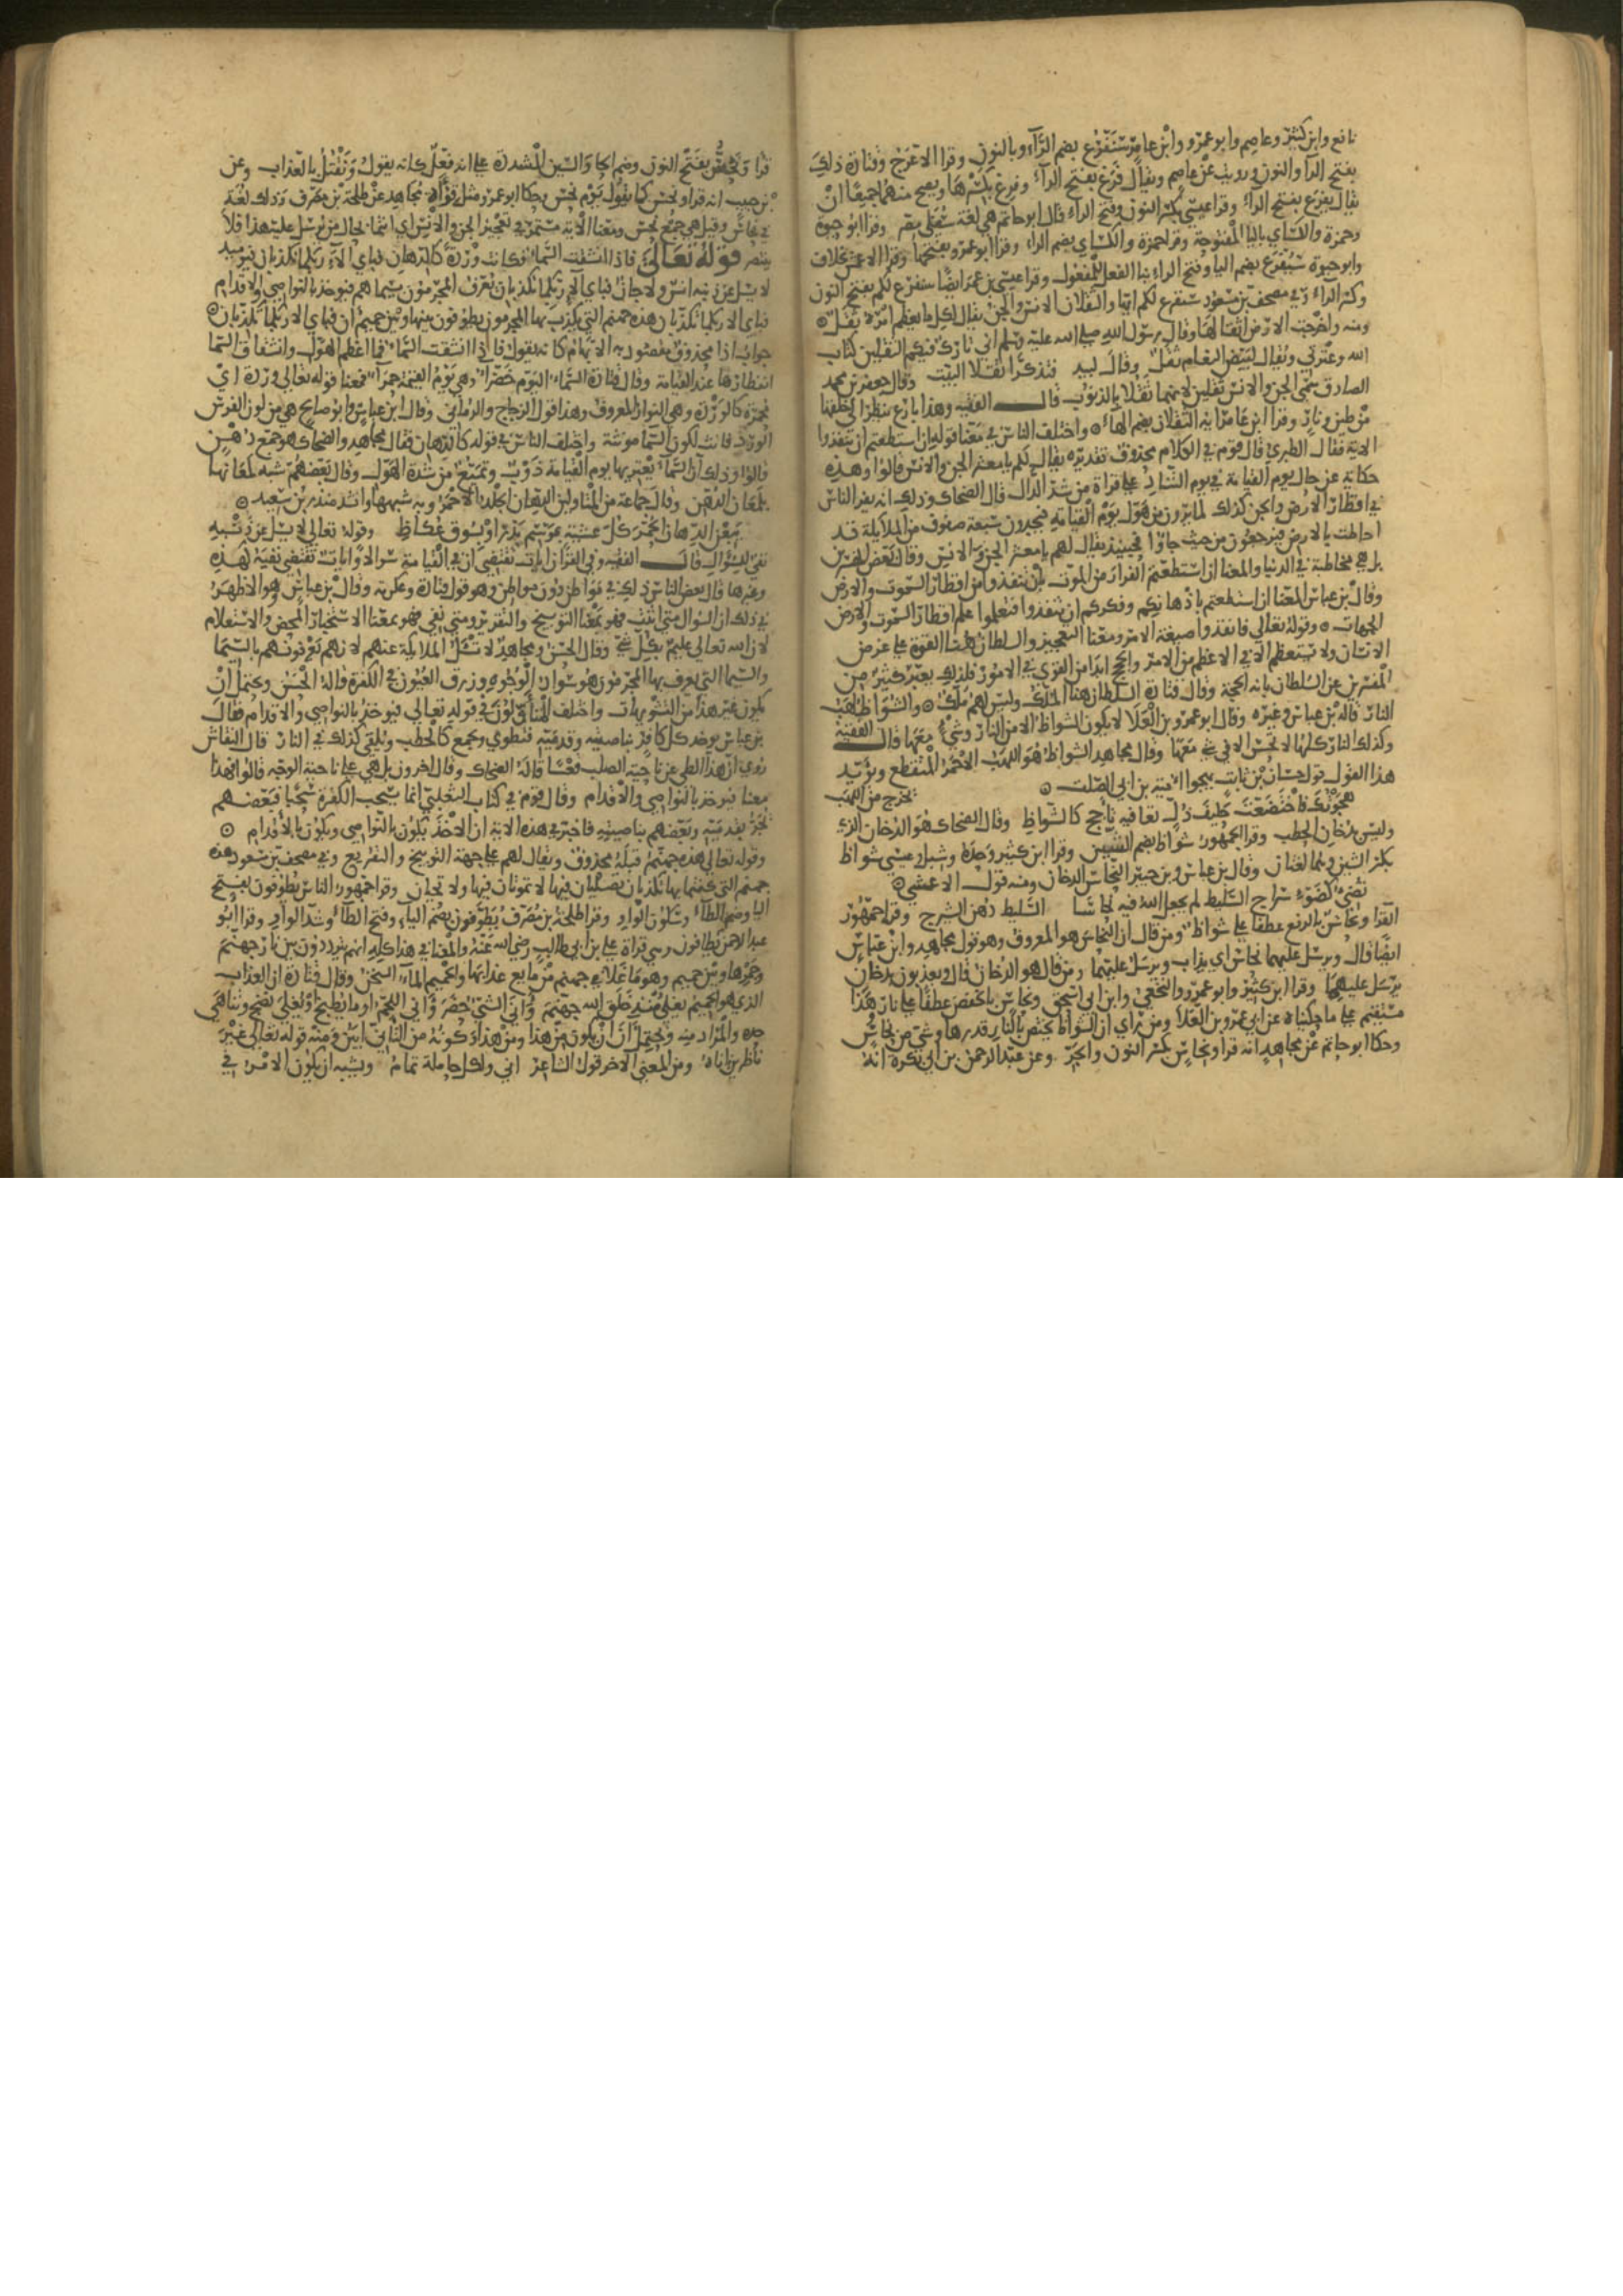 نافع وابن كثير وعاصم وابو عمرو وابن عامر سنفرغ بضم الراء وبالنون وقرا الاعرج وقتادة ذلك
بفتح الرا والنون ورويت عن عاصم ويقال فرغ بفتح الراء وفرغ بكسرها ويصح منهما جميعا ان
يقال يفرغ بفتح الراء وقرا عيسى بكسر النون وفتح الراء قال ابو حاتم هي لغة سفلى مضر وقرا ابو حيوة
وحمزة والكساي باليا المفتوحة وقرا حمزة والكساي بضم الراء وقرا ابو عمرو بفتحها وقرا الاعمش بخلاف
وابو حيوة سيفرغ بضم اليا وفتح الراء بنا الفعل للمفعول وقرا عيسى بن عمر ايضا سنفرغ لكم بفتح النون
وكسر الراء وفي مصحف بن مسعود سنفرغ لكم ايها والثقلان الانس والجن يقال لكل ما يعظم امره ثقل
ومنه واخرجت الارض اثقالها وقال رسول الله صلى الله عليه وسلم اني تارك فيكم الثقلين كتاب
الله وعترتي ويقال لبيض النعام ثقل وقال لبيد فتذكرا ثقلا البيت وقال جعفر بن محمد
الصادق سمى الجن والانس ثقلين لانهما ثقلا بالذنوب قال الفقيه وهذا بارع ينظر الى خلقهما
من طين ونار وقرا ابن عامر ايه الثقلان بضم الهاء واختلف الناس في معنا قوله ان استطعتم ان تنفذوا
الاية فقال الطبري قال قوم في الكلام محذوف تقديره يقال لكم يا معشر الجن والانس قالوا وهذه
حكاية عن حال يوم القيامة في يوم التناد على قراة من شد الدال قال الضحاك وذلك انه يفر الناس
في اقطار الارض والجن كذلك لما يرون من هول يوم القيامة فيجدون سبعة صفوف من الملايكة قد
احاطت بالارض فيرجعون من حيث جاؤا فحينيذ يقال لهم يا معشر الجن والانس وقال بعض المفسرين
بل هي مخاطبة في الدنيا والمعنا ان استطعتم الفرار من الموت بان تنفذوا من اقطار السموت والارض
وقال بن عباس المعنا ان استطعتم باذهانكم وفكركم ان تنفذوا فتعلموا علم اقطار السموت والارض
الجهات وقوله تعالى فانفذوا صيغة الامر ومعنا التعجيز والسلطان هنا القوة على غرض
الانسان ولا تستعظم الا في الاعظم من الامر والحجج ابدا من القوي في الامور فلذلك يعبر كثير من
المفسرين عن السلطان بانه الحجة وقال قتادة السلطان هنا الملك وليس لهم ملك والشواظ لهب
النار قاله بن عباس وغيره وقال ابو عمرو بن العلا لا يكون الشواظ الا من النار وشيء معها قال الفقيه
وكذلك النار كلها لا تحس الا في شي معها وقال مجاهد الشواظ هو اللهب الاخضر المنقطع ويؤيد
هذا القول قول حسان بن ثابت يهجوا امية بن ابي الصلت
هجوتك فاختضعت حليف ذل تعافيه تاجج كالشواظ وقال الضحاك هو الدخان الذي
يخرج من اللهب
وليس بدخان الحطب وقرا الجمهور شواظ بضم الشين وقرا ابن كثير وحده وشبل وعيسى شواظ
بكسر الشين وهما لغتان وقال بن عباس وبن جبير النحاس الدخان ومنه قول الاعشي
تضيء كضوء سراج السليط لم يجعل الله فيه نحاسا السليط دهن الشيرج وقرا جمهور
القرا ونحاس بالرفع عطفا على شواظ ومن قال ان النحاس هو المعروف وهو قول مجاهد وابن عباس
ايضا قال ويرسل عليهما نحاس اي يذاب ويرسل عليهما ومن قال هو الدخان قال ويعذبون بدخان
يرسل عليهما وقرا ابن كثير وابو عمرو والنخعي وابن ابي اسحق ونحاس بالخفض عطفا على نار هذا
مستقيم على ما حكيناه عن ابي عمرو بن العلا ومن راى ان الشواظ يختص بالنار قدر هنا وشي من نحاس
وحكا ابو حاتم عن مجاهد انه قرا ونحاس بكسر النون والجر وعن عبد الرحمن بن ابي بكرة انه
قرا ونحس بفتح النون وضم الحا والسين المشددة على انه فعل كانه يقول ونقتل بالعذاب وعن
بن جبير انه قرا ونحس كما يقول يوم نحس وحكا ابو عمرو مثل قراة مجاهد عن طلحة بن مصرف وذلك لغة
في نحاس وقيل هي جمع نحس ومعنا الاية مستمر في تعجيز الجن والانس اي انتما بحال من يرسل عليه هذا فلا
ينتصر قوله تعالى فاذا انشقت السماء فكانت وردة كالدهان فباي الاء ربكما تكذبان فيوميذ
لا يسل عن ذنبه انس ولا جان فباي الاء ربكما تكذبان يعرف المجرمون بسيماهم فيوخذ بالنواصي والاقدام
فباي الا ربكما تكذبان هذه جهنم التي يكذب بها المجرمون يطوفون بينها وبين حميم ان فباي الا ربكما تكذبان
جواب اذا محذوف مقصود به الابهام كانه يقول فاذا انشقت السماء فما اعظم الهول وانشقاق السما
انفطارها عند القيامة وقال قتادة السماء اليوم خضرا وهي يوم القيمة حمرا فمعنا قوله تعالى وردة اي
محمرة كالوردة وهي النوار المعروف وهذا قول الزجاج والرماني وقال ابن عباس وابو صالح هي من لون الفرس
الورد فانث لكون السما مونثة واختلف الناس في قوله كالدهان فقال مجاهد والضحاك هو جمع دهن
قالوا وذلك ان السماء يعتريها يوم القيامة ذوب وتميع من شدة الهول وقال بعضهم شبه لمعانها
بلمعان الدهن وقال جماعة من المتاولين الدهان الجلد الاحمر وبه شبهها وانشد منذر بن سعيد
يبعن الدهان الحمر كل عشية بموسم بدر او بسوق عكاظ وقوله تعالى لا يسل عن ذنبه
نفي للسؤال قال الفقيه وفي القران ايات تقتضي ان في القيامة سوالا وايات تقتضي نفيه كهذه
وغيرها فقال بعض الناس ذلك في مواطن دون مواطن وهو قول قتادة وعكرمة وقال بن عباس وهو الاظهر
في ذلك ان السوال متى اثبت فهو بمعنا التوبيخ والتقرير ومتى نفي فهو بمعنا الاستخبار المحض والاستعلام
لان الله تعالى عليم بكل شي وقال الحسن ومجاهد لا تسل الملايكة عنهم لانهم يعرفونهم بالسيما
والسيما التي يعرف بها المجرمون هو سواد الوجوه وزرق العيون في الكفرة قاله الحسن ويحتمل ان
يكون غير هذا من التشويهات واختلف المتاولون في قوله تعالى فيوخذ بالنواصي والاقدام فقال
بن عباس يوخذ كل كافر بناصيته وقدميه فيطوي ويجمع كالحطب ويلقى كذلك في النار قال النقاش
روي ان هذا الطي عن ناحية الصلب قعسا قاله الضحاك وقال اخرون بل هي على ناحية الوجه قالوا فهذا
معنا فيوخذ بالنواصي والاقدام وقال قوم في كتاب الثعلبي انما يسحب الكفرة سحبا فبعضهم
يجر بقدميه وبعضهم بناصيته فاخبر في هذه الاية ان الاخذ يكون بالنواصي ويكون بالاقدام
وقوله تعالى هذه جهنم قبله محذوف ويقال لهم على جهة التوبيخ والتقريع وفي مصحف بن مسعود هذه
جهنم التي كنتما بها تكذبان تصليان فيها لا تموتان فيها ولا تحيان وقرا جمهور الناس يطوفون بفتح
اليا وضم الطاء وسكون الواو وقرا طلحة بن مصرف يطوفون بضم الياء وفتح الطاء وشد الواو وقرا ابو
عبد الرحمن يطافون وهي قراة علي بن ابي طالب رضي الله عنه والمعنا في هذا كله انهم يترددون بين نار جهنم
وجمرها وبين حميم وهو ما غلا في جهنم من مايع عذابها والحميم الماء السخن وقال قتادة ان العذاب
الذي هو الحميم يغلي منذ خلق الله جهنم وانى الشي حضر وانى اللحم او ما يطبخ او يغلى نضج وتناهى
حره والمراد منه ويحتمل ان يكون من هذا ومن هذا وكونه من الثاني ابين ومنه قوله تعالى غير
ناظرين اناه ومن المعنى الاخر قول الشاعر انى ولكل حاملة تمام ويشبه ان يكون الامر في